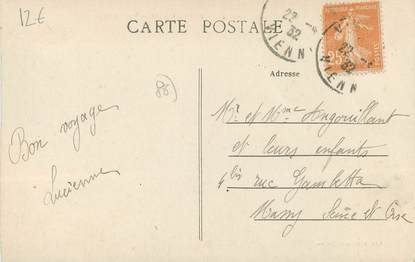 12€
CARTE POSTALE
22 -4
32
VIENN
22 -4
32
VIENN
25
Adresse
86)
Bon voyage
Lucienne
Mr. et Mme Angouillant
et leurs enfants
4 bis rue Gambetta
Massy Seine et Oise